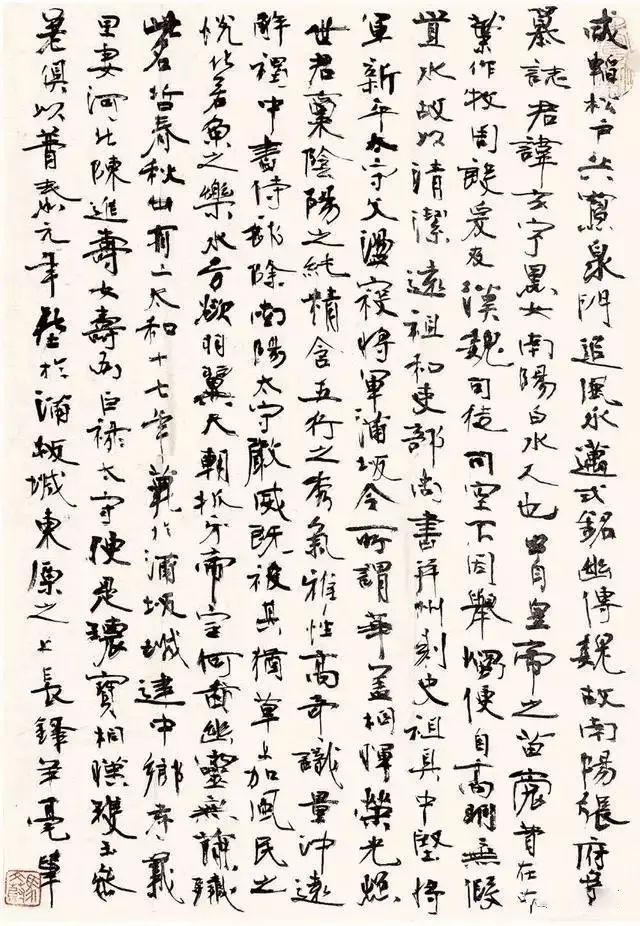 咸韜松戶共寢泉門追風永邁式銘幽傳魏故南陽張府君
墓誌君諱玄字黑女南陽白水人也出自皇帝之苗裔昔在中
葉作牧周殷爰及漢魏司徒司空不因舉燭便自高明無假
置水故以清潔遠祖和吏部尚書并州刺史祖具中堅將
軍新平太守父盪寇將軍蒲坂令所謂華蓋相暉榮光照
世君稟陰陽之純精含五行之秀氣雅性高奇識量沖遠
解褐中書侍郎除南陽太守嚴威既被其猶草上加風民之
悅化若魚之樂水方欲羽翼天朝抓牙帝室何啚幽靈無簡殲
此名哲春秋卅有二太和十七年薨於蒲坂城建中鄉孝義
里妻河北陳進壽女壽為巨祿太守便是瓌寶相暎瓊玉參
差俱以普泰元年塟於蒲坂城東原之上長鋒羊毫筆